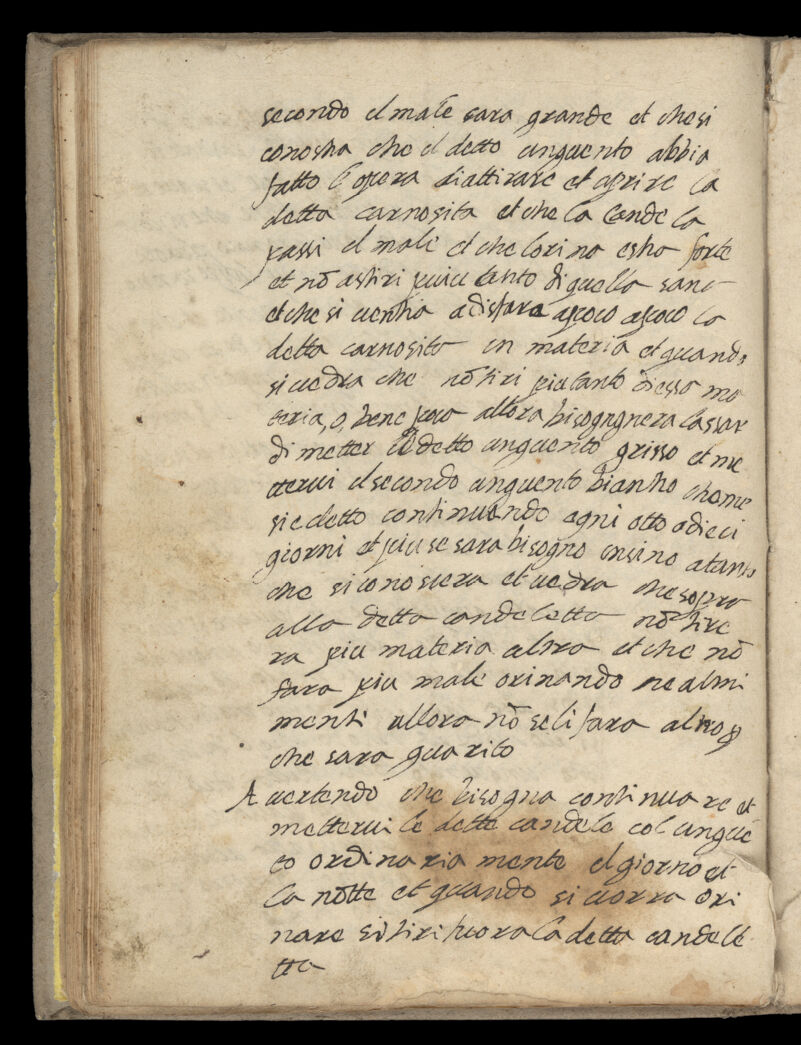 secondo el male sara grande et che si
conosha che el detto unguento abbia
fatto l'opera di attirare et aprire la
detta carnosita et che la candela
passi el male et che lorina esha forte
et nō astiri piu tanto di quella sano
et che si venha a disfare apoco apoco la
detta carnosita in materia et quando
si vedra che nō tiri piu tanto dessa ma
teria, o, bene poco allora bisogngnera lassar
di metter el detto unguento grisso et me
ttervi el secondo unguento bianho chome
si e detto continuando ogni otto o dieci
giorni et piu se sara bisogno insino atanto
che si conosciera et vedra che sopra
alla detta candeletta nō tire
ra piu materia altra et che nō
fara piu male orinando ne altri
menti allora nō se li fara altro p
che sara guarito
Avertendo che bisogna continuare et
mettervi le dette candele col unguē
to ordinaria mente el giorno et
la notte et quando si vorra ori
nare si tiri fuora la detta candele
tta